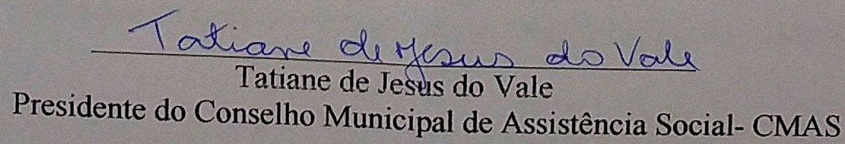 Tatiane de Jesus do Vale
Tatiane de Jesus do Vale
Presidente do Conselho Municipal de Assistência Social- CMAS